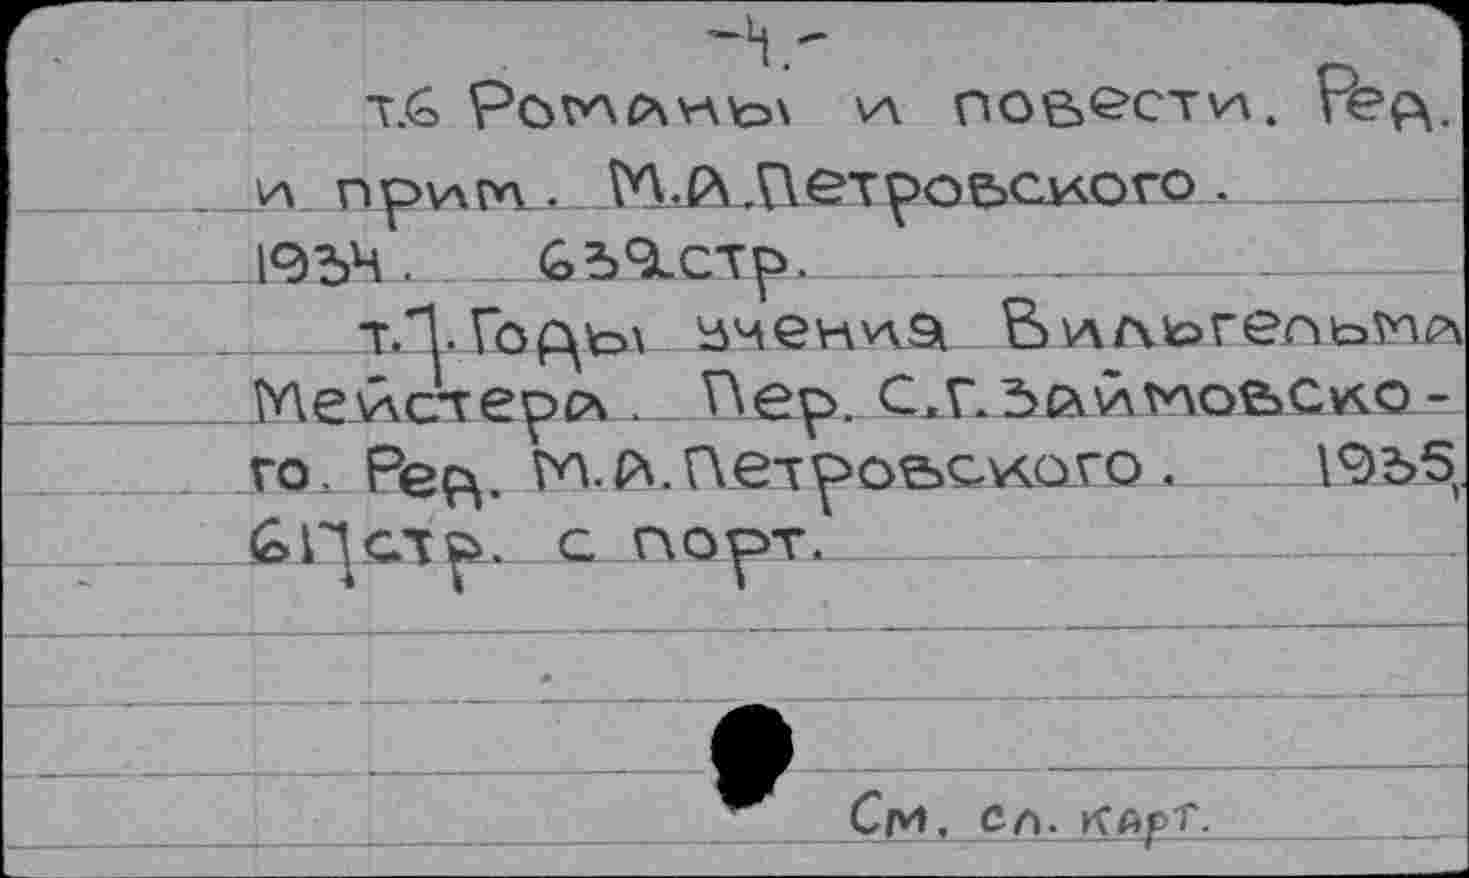 -4.-
т.6 Романы и повести. Ред.
и прим. М.А.Петровского.
1934. 632стр.
т.7.Годы учения Вильгельма
Мейстера. Пер. С.Г.Займовско-
го. Ред. М.А.Петровского. 1935,
617стр. с порт.
См. сл. карт.